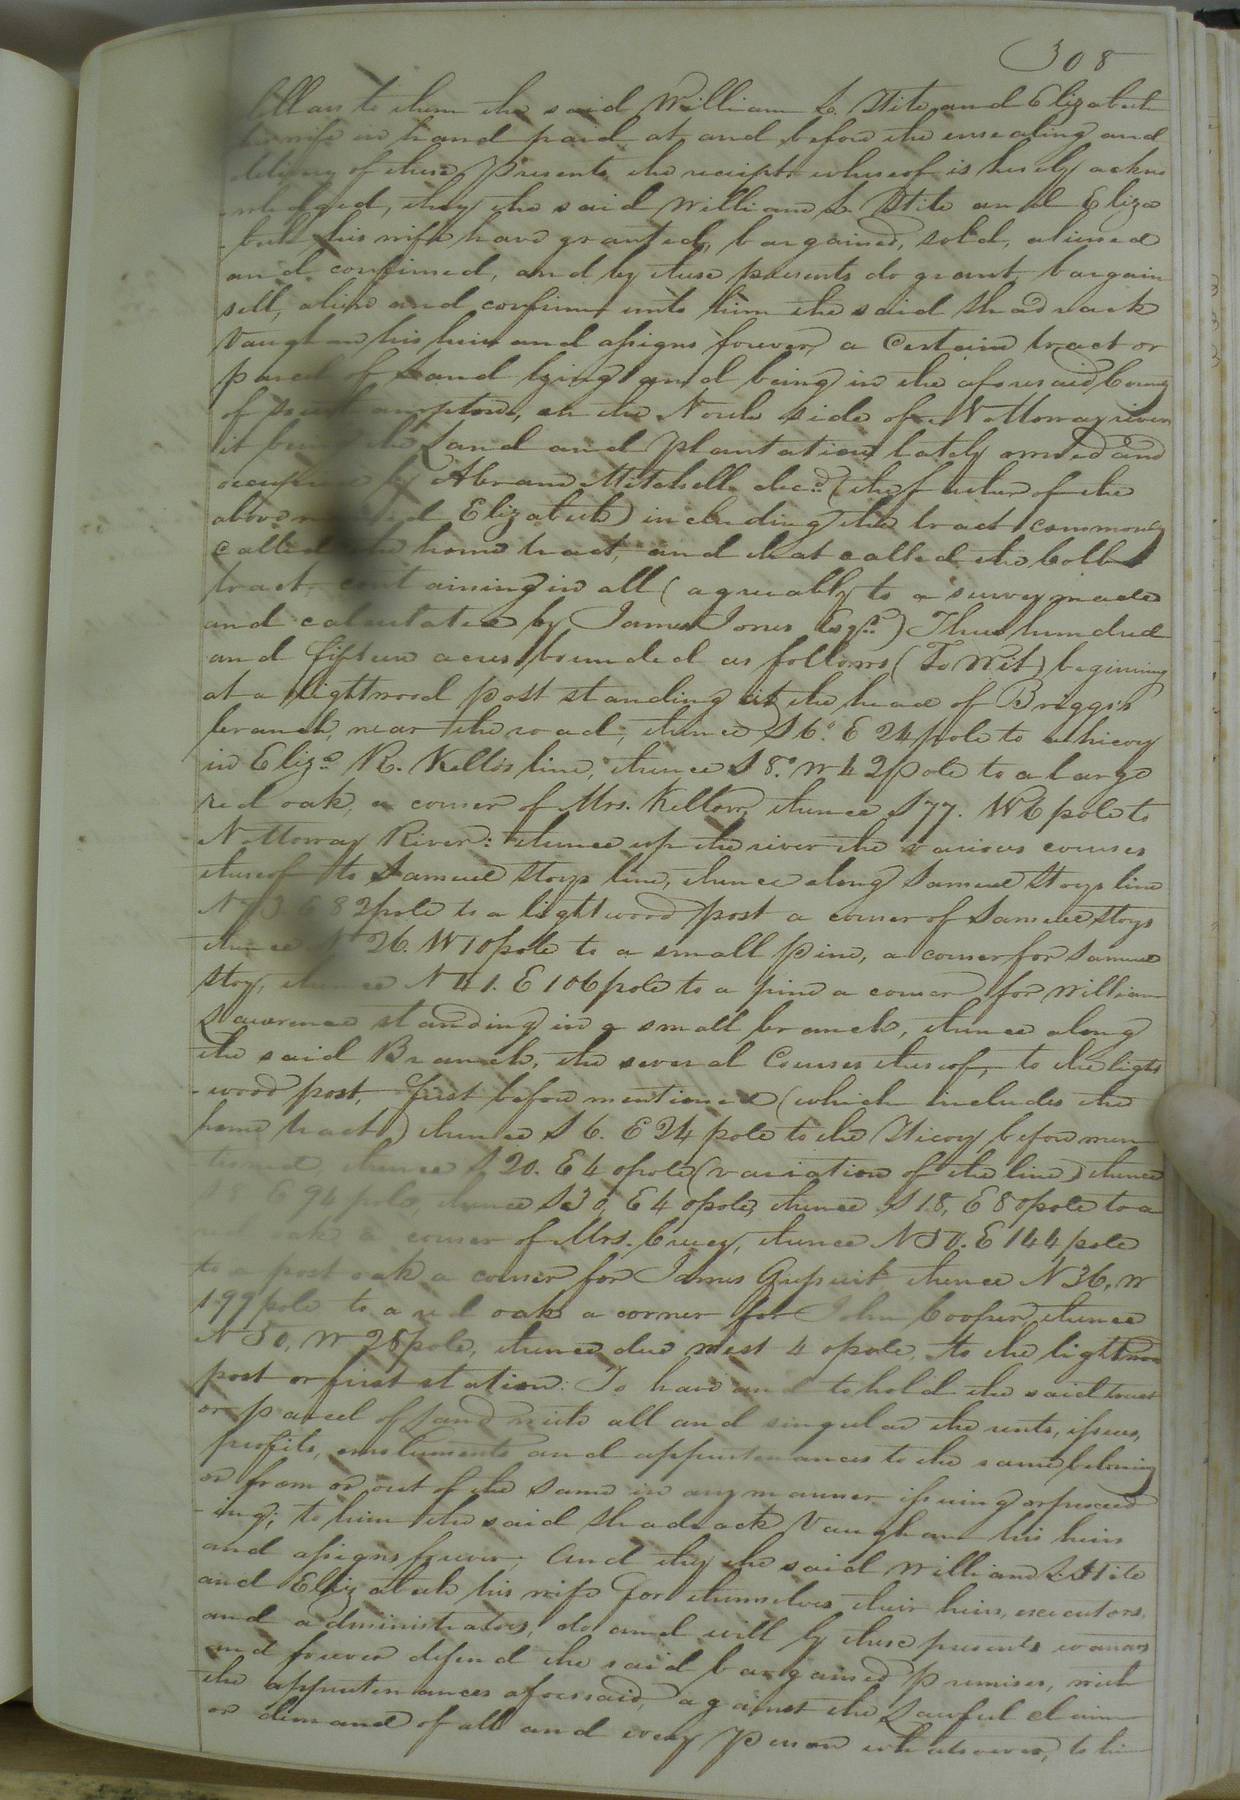 308
to them the said William L. Stite and Elizabeth
his wife in hand paid at and before the ensealing and
delivery of these Presents the receipt whereof is hereby ackno
-wledged, they the said William L. Stite and Eliza
-beth his wife have granted, bargained, sold, aliened
and confirmed, and by these presents do grant, bargain
sell, alien and confirm unto him the said Shadrack
Vaughan his heirs and assigns forever, a Certain tract or
parcel of Land lying and being in the aforesaid County
of Southampton, on the North side of Nottoway river
it being the Land and plantation lately owned and
occupied by Abram Mitchell dec.d (the father of the
above named Elizabeth) including the tract commonly
called the home tract, and that called the
tract, containing in all (agreeably to a survey made
and calculated by James Jones Esqr.) Three hundred
and fifteen acres bounded as follows (To Wit) begining
at a lightwood post standing at the head of Briggs's
branch, near the road, thence S 6.° E 24 pole to a hicory
in Eliz.a R. Kello's line, thence S 8.° W 42 pole to a large
red oak, a corner of Mrs. Kellow, thence S 77. W 6 pole to
Nottoway River: thence up the river the various courses
thereof to Samuel Storys line, thence along Samuel Storys line
N 73 E 82 pole to a lightwood post a corner of Samuel Storys
thence N 26. W 10 pole to a small pine, a corner for Samuel
Story, thence N 41. E 106 pole to a pine a corner for William
Lawrence standing in a small branch, thence along
the said Branch, the several Courses thereof, to the light
-wood post, first before mentioned (which includes the
home tract) thence S 6. E 24 pole to the Hicory before men
-tioned, thence S 20. E 40 pole (variation of the line) thence
E 94 pole, thence S 30, E 40 pole, thence S 18, E 80 pole to a
oak a corner of Mrs. thence N 50. E 144 pole
to a post oak a corner for James thence N 36. W
199 pole to a red oak a corner for John Cooper, thence
N 50, W 28 pole, thence due west 40 pole, to the lightwood
post or first station: To have and to hold the said tract
or parcel of Land with all and singular the rents, issues,
profits, emoluments and appurtenances to the same belonging
or from or out of the same in any manner issuing or proceed
-ing; to him the said Shadrack Vaughan his heirs
and assigns forever; And they the said William L. Stite
and Elizabeth his wife for themselves, their heirs, executors,
and administrators, do and will by these presents warrant
and forever defend the said bargained Premises, with
the appurtenances aforesaid, against the Lawful claim
or demand of all and every Person whatsoever, to him